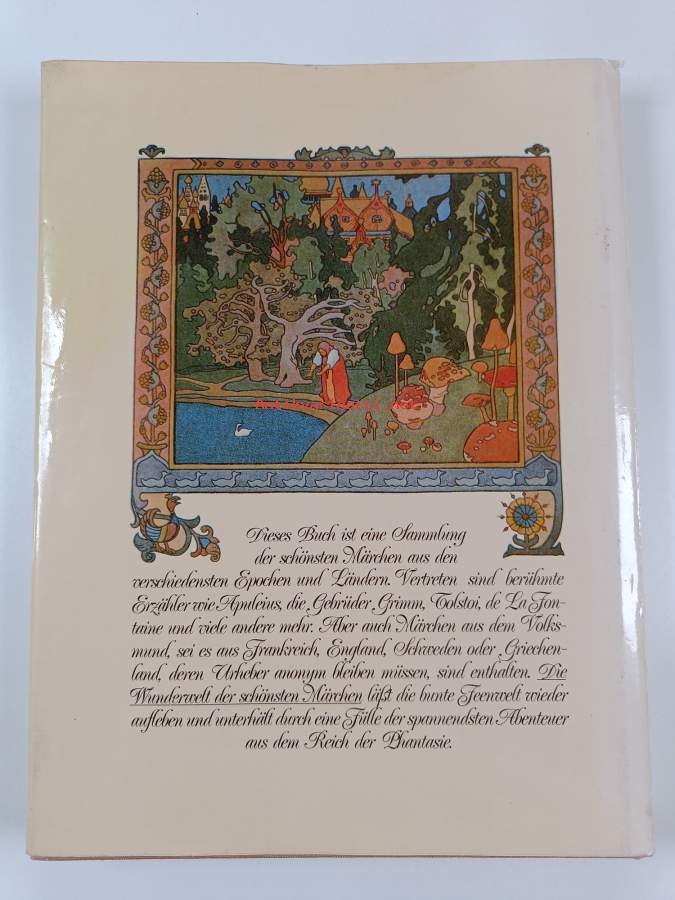 Dieses Buch ist eine Sammlung
der schönsten Märchen aus den
verschiedensten Epochen und Ländern. Vertreten sind berühmte
Erzähler wie Apuleius, die Gebrüder Grimm, Tolstoi, de La Fon-
taine und viele andere mehr. Aber auch Märchen aus dem Volks-
mund, sei es aus Frankreich, England, Schweden oder Griechen-
land, deren Urheber anonym bleiben müssen, sind enthalten. Die
Wunderwelt der schönsten Märchen läßt die bunte Feenwelt wieder
aufleben und unterhält durch eine Fülle der spannendsten Abenteuer
aus dem Reich der Phantasie.